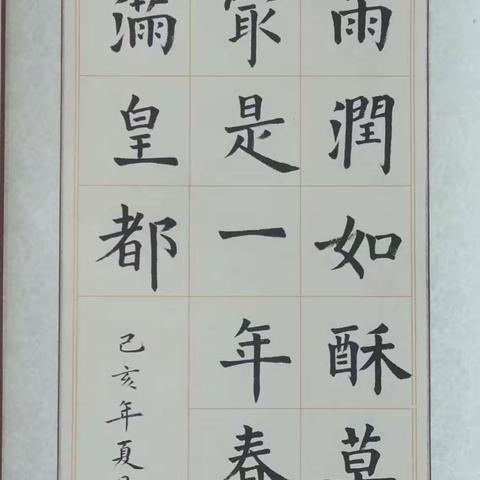 雨潤如酥草
最是一年春
滿皇都
己亥年夏月